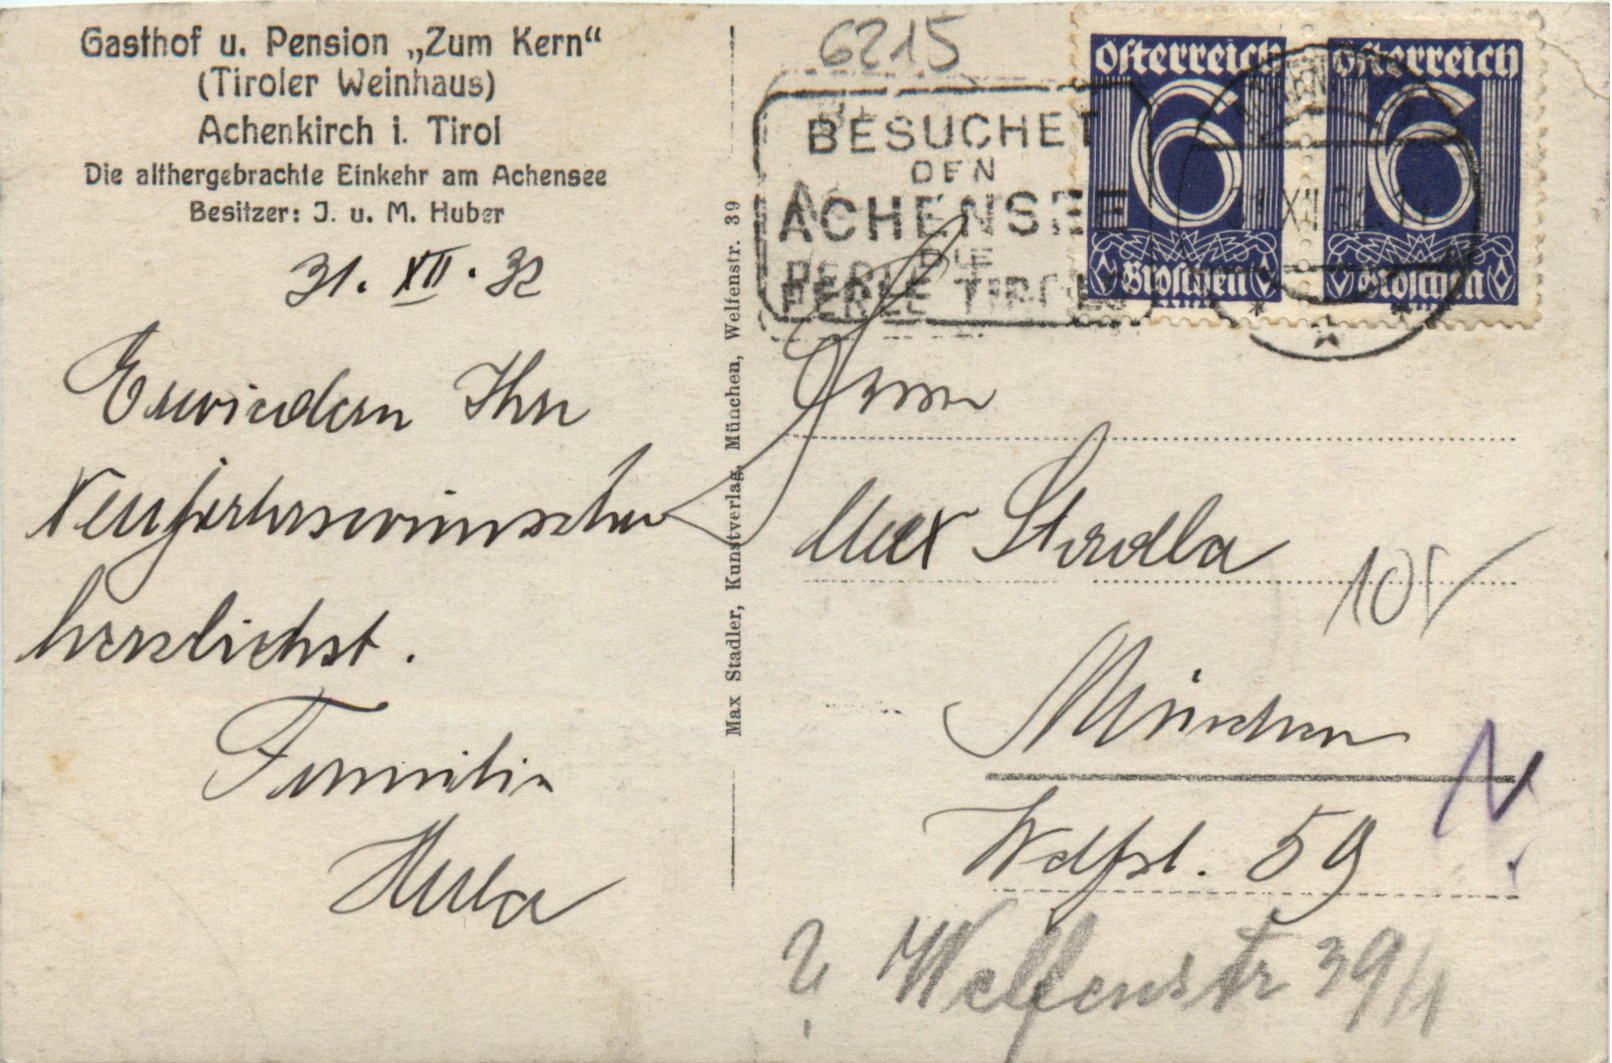 Gasthof u. Pension „Zum Kern“
(Tiroler Weinhaus)
Achenkirch i. Tirol
Die althergebrachte Einkehr am Achensee
Besitzer: J. u. M. Huber
31. XII. 32
Erwiedern Ihre
Neujahrswünsche
herzlichst.
Familie
Max Stadler, Kunstverlag, München, Welfenstr. 39
6215
BESUCHET
DEN
ACHENSEE
DIE
PERLE TIROLS
Österreich
6
Groschen
Österreich
6
Groschen
XII 32
Herrn
Max Stadler
München
59
Welfenstr 39/1